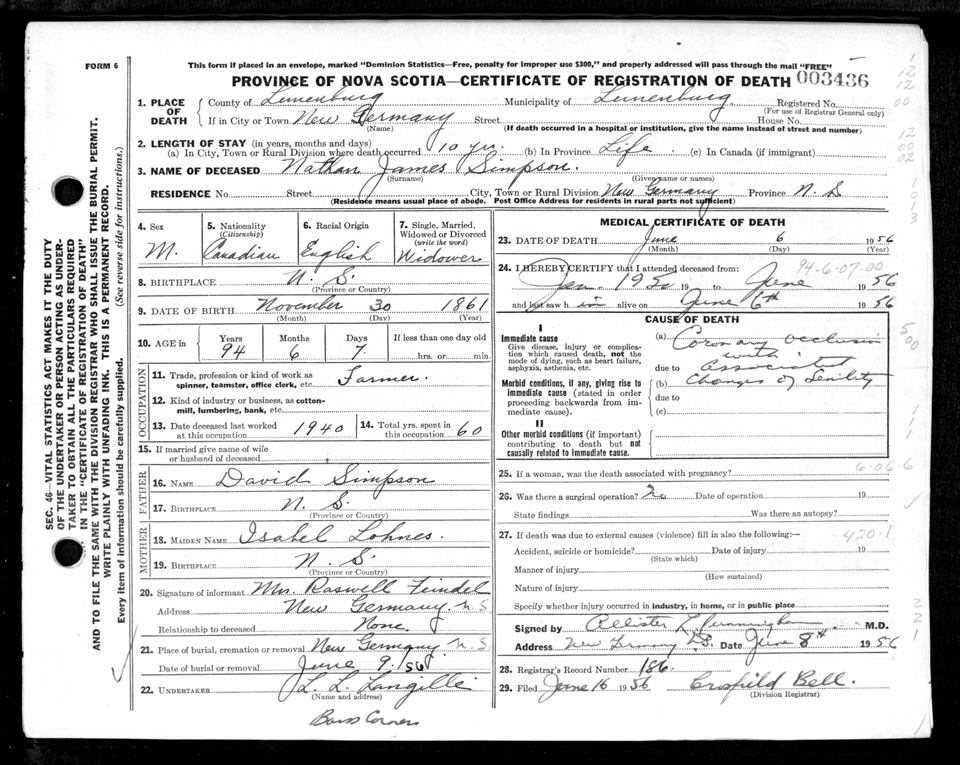 FORM 6
This form if placed in an envelope, marked "Dominion Statistics—Free, penalty for improper use $300," and properly addressed will pass through the mail "FREE"
PROVINCE OF NOVA SCOTIA—CERTIFICATE OF REGISTRATION OF DEATH 003436
1. PLACE OF DEATH County of Lunenburg Municipality of Lunenburg. Registered No.
(For use of Registrar General only)
If in City or Town New Germany Street House No.
(Name) (If death occurred in a hospital or institution, give the name instead of street and number)
2. LENGTH OF STAY (in years, months and days)
(a) In City, Town or Rural Division where death occurred 10 yrs. (b) In Province Life. (c) In Canada (if immigrant)
3. NAME OF DECEASED Nathan James Simpson.
(Surname) (Given name or names)
RESIDENCE No. Street City, Town or Rural Division New Germany Province N. S
(Residence means usual place of abode. Post Office Address for residents in rural parts not sufficient)
4. Sex
M.
5. Nationality
(Citizenship)
Canadian
6. Racial Origin
English
7. Single, Married, Widowed or Divorced
(write the word)
Widower
8. BIRTHPLACE N. S.
(Province or Country)
9. DATE OF BIRTH November 30 1861
(Month) (Day) (Year)
10. AGE in Years Months Days If less than one day old
94 6 7. hrs. or min.
OCCUPATION
11. Trade, profession or kind of work as spinner, teamster, office clerk, etc. Farmer.
12. Kind of industry or business, as cotton-mill, lumbering, bank, etc.
13. Date deceased last worked at this occupation 1940
14. Total yrs. spent in this occupation 60
15. If married give name of wife or husband of deceased
FATHER
16. NAME David Simpson
17. BIRTHPLACE N. S
(Province or Country)
MOTHER
18. MAIDEN NAME Isabel Lohnes.
19. BIRTHPLACE N. S
(Province or Country)
20. Signature of informant Mrs. Raswell Feindel
Address New Germany, N.S
Relationship to deceased None.
21. Place of burial, cremation or removal New Germany N.S
Date of burial or removal June 9. 56
22. UNDERTAKER L. L. Langille
(Name and address)
Corner
MEDICAL CERTIFICATE OF DEATH
23. DATE OF DEATH June 6 1956
(Month) (Day) (Year)
94-6-07-00
24. I HEREBY CERTIFY that I attended deceased from:
Jan. 19 to June 1956
and last saw h im alive on June 6th 1956
CAUSE OF DEATH
I
Immediate cause
Give disease, injury or complication which caused death, not the mode of dying, such as heart failure, asphyxia, asthenia, etc.
(a) Coronary occlusion
with
due to associated
Morbid conditions, if any, giving rise to immediate cause (stated in order proceeding backwards from immediate cause).
(b) changes of Senility
due to
(c)
II
Other morbid conditions (if important) contributing to death but not causally related to immediate cause.
25. If a woman, was the death associated with pregnancy?
6-06-6
26. Was there a surgical operation? No Date of operation 19
State findings Was there an autopsy?
27. If death was due to external causes (violence) fill in also the following:—
420.1
Accident, suicide or homicide? Date of injury 19
(State which)
Manner of injury
(How sustained)
Nature of injury
Specify whether injury occurred in industry, in home, or in public place
Signed by M.D.
Address New Germany N.S. Date June 8th 1956
28. Registrar's Record Number 186.
29. Filed June 16 1956 Bell.
(Division Registrar)
SEC. 46—VITAL STATISTICS ACT MAKES IT THE DUTY
OF THE UNDERTAKER OR PERSON ACTING AS UNDER-
TAKER TO OBTAIN ALL THE PARTICULARS REQUIRED
IN THE "CERTIFICATE OF REGISTRATION OF DEATH"
AND TO FILE THE SAME WITH THE DIVISION REGISTRAR WHO SHALL ISSUE THE BURIAL PERMIT.
WRITE PLAINLY WITH UNFADING INK. THIS IS A PERMANENT RECORD.
Every item of information should be carefully supplied. (See reverse side for instructions.)